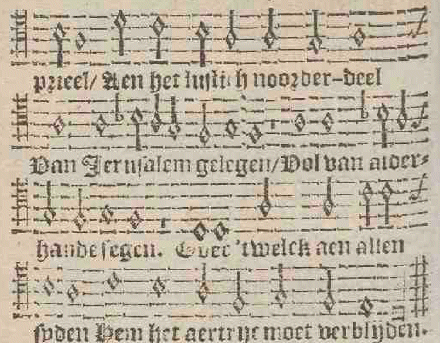 prieel/ Aen het lustich noorder-deel
Van Jerusalem gelegen/Vol van alder-
hande segen. Over 'twelck aen allen
syden Hem het aertrijc moet verblyden.